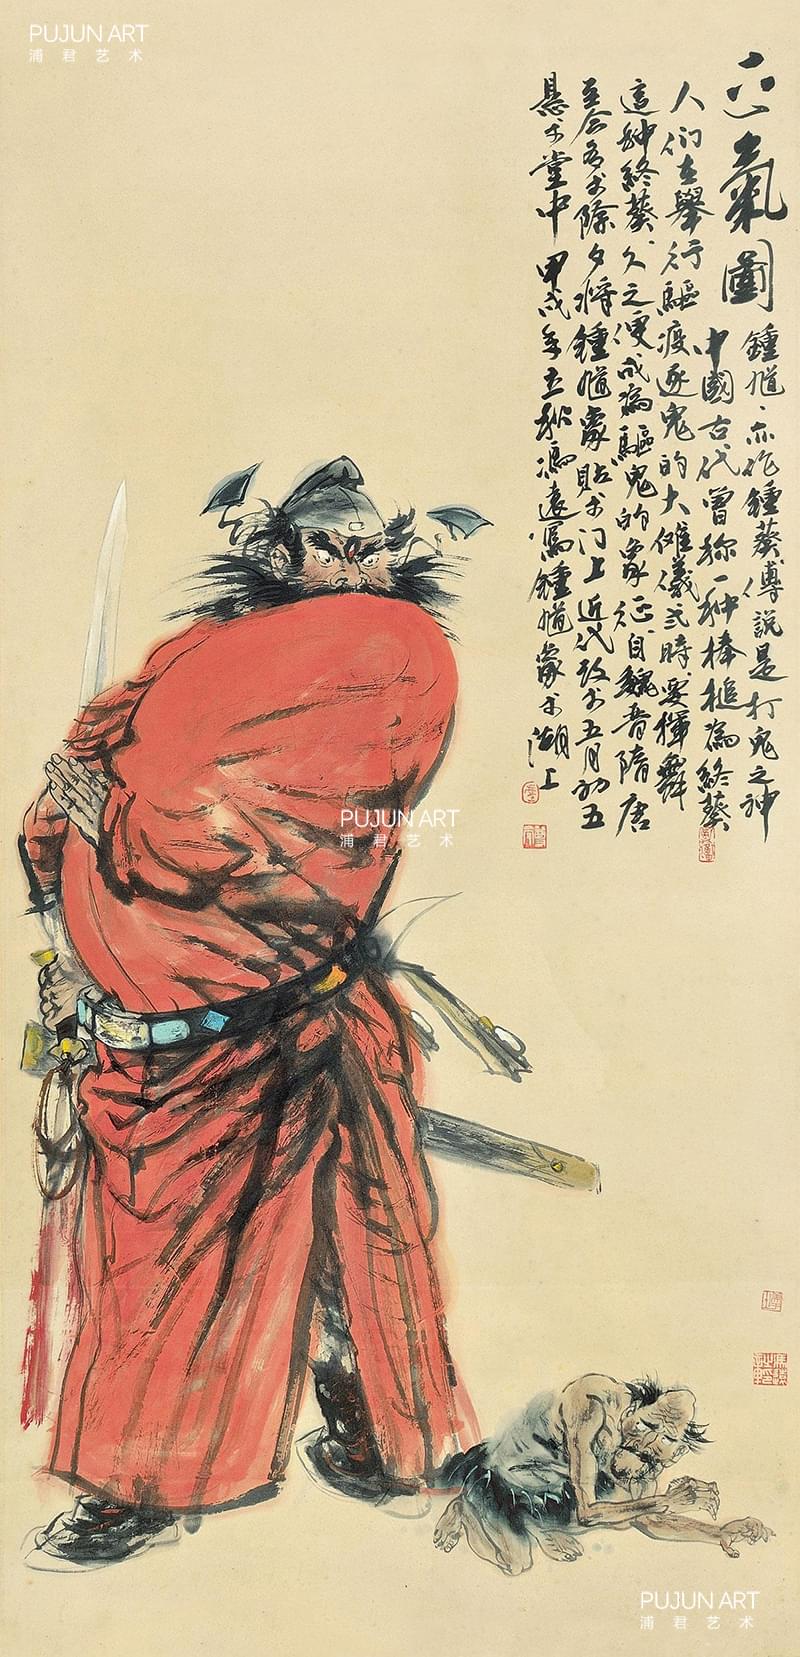 PUJUN ART
浦君艺术
正氣圖
鍾馗、亦作鍾葵傳說是打鬼之神
中國古代曾称一种棒槌為終葵
人们在舉行驅疫逐鬼的大傩儀式時要揮舞
這种終葵、久之便成為驅鬼的象征自魏晋隋唐
至今多于除夕将鍾馗象貼于门上近代改于五月初五
悬于堂中 甲戌年立秋馮遠寫鍾馗象于湖上
PUJUN ART
浦君艺术
PUJUN ART
浦君艺术